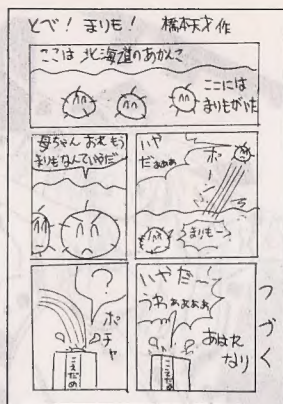 とべ！まりも！　橋本天才作
ここは 北海道のあかんこ
ここには
まりもがいた
母ちゃん おれ もう
まりもなんていやだ
いや
だぁぁぁ
ポーン
まりもー
？
ポチャ
こえだめ
いやだーて
うわぁぁぁぁぁ
あはれ
なり
こえだめ
つづく